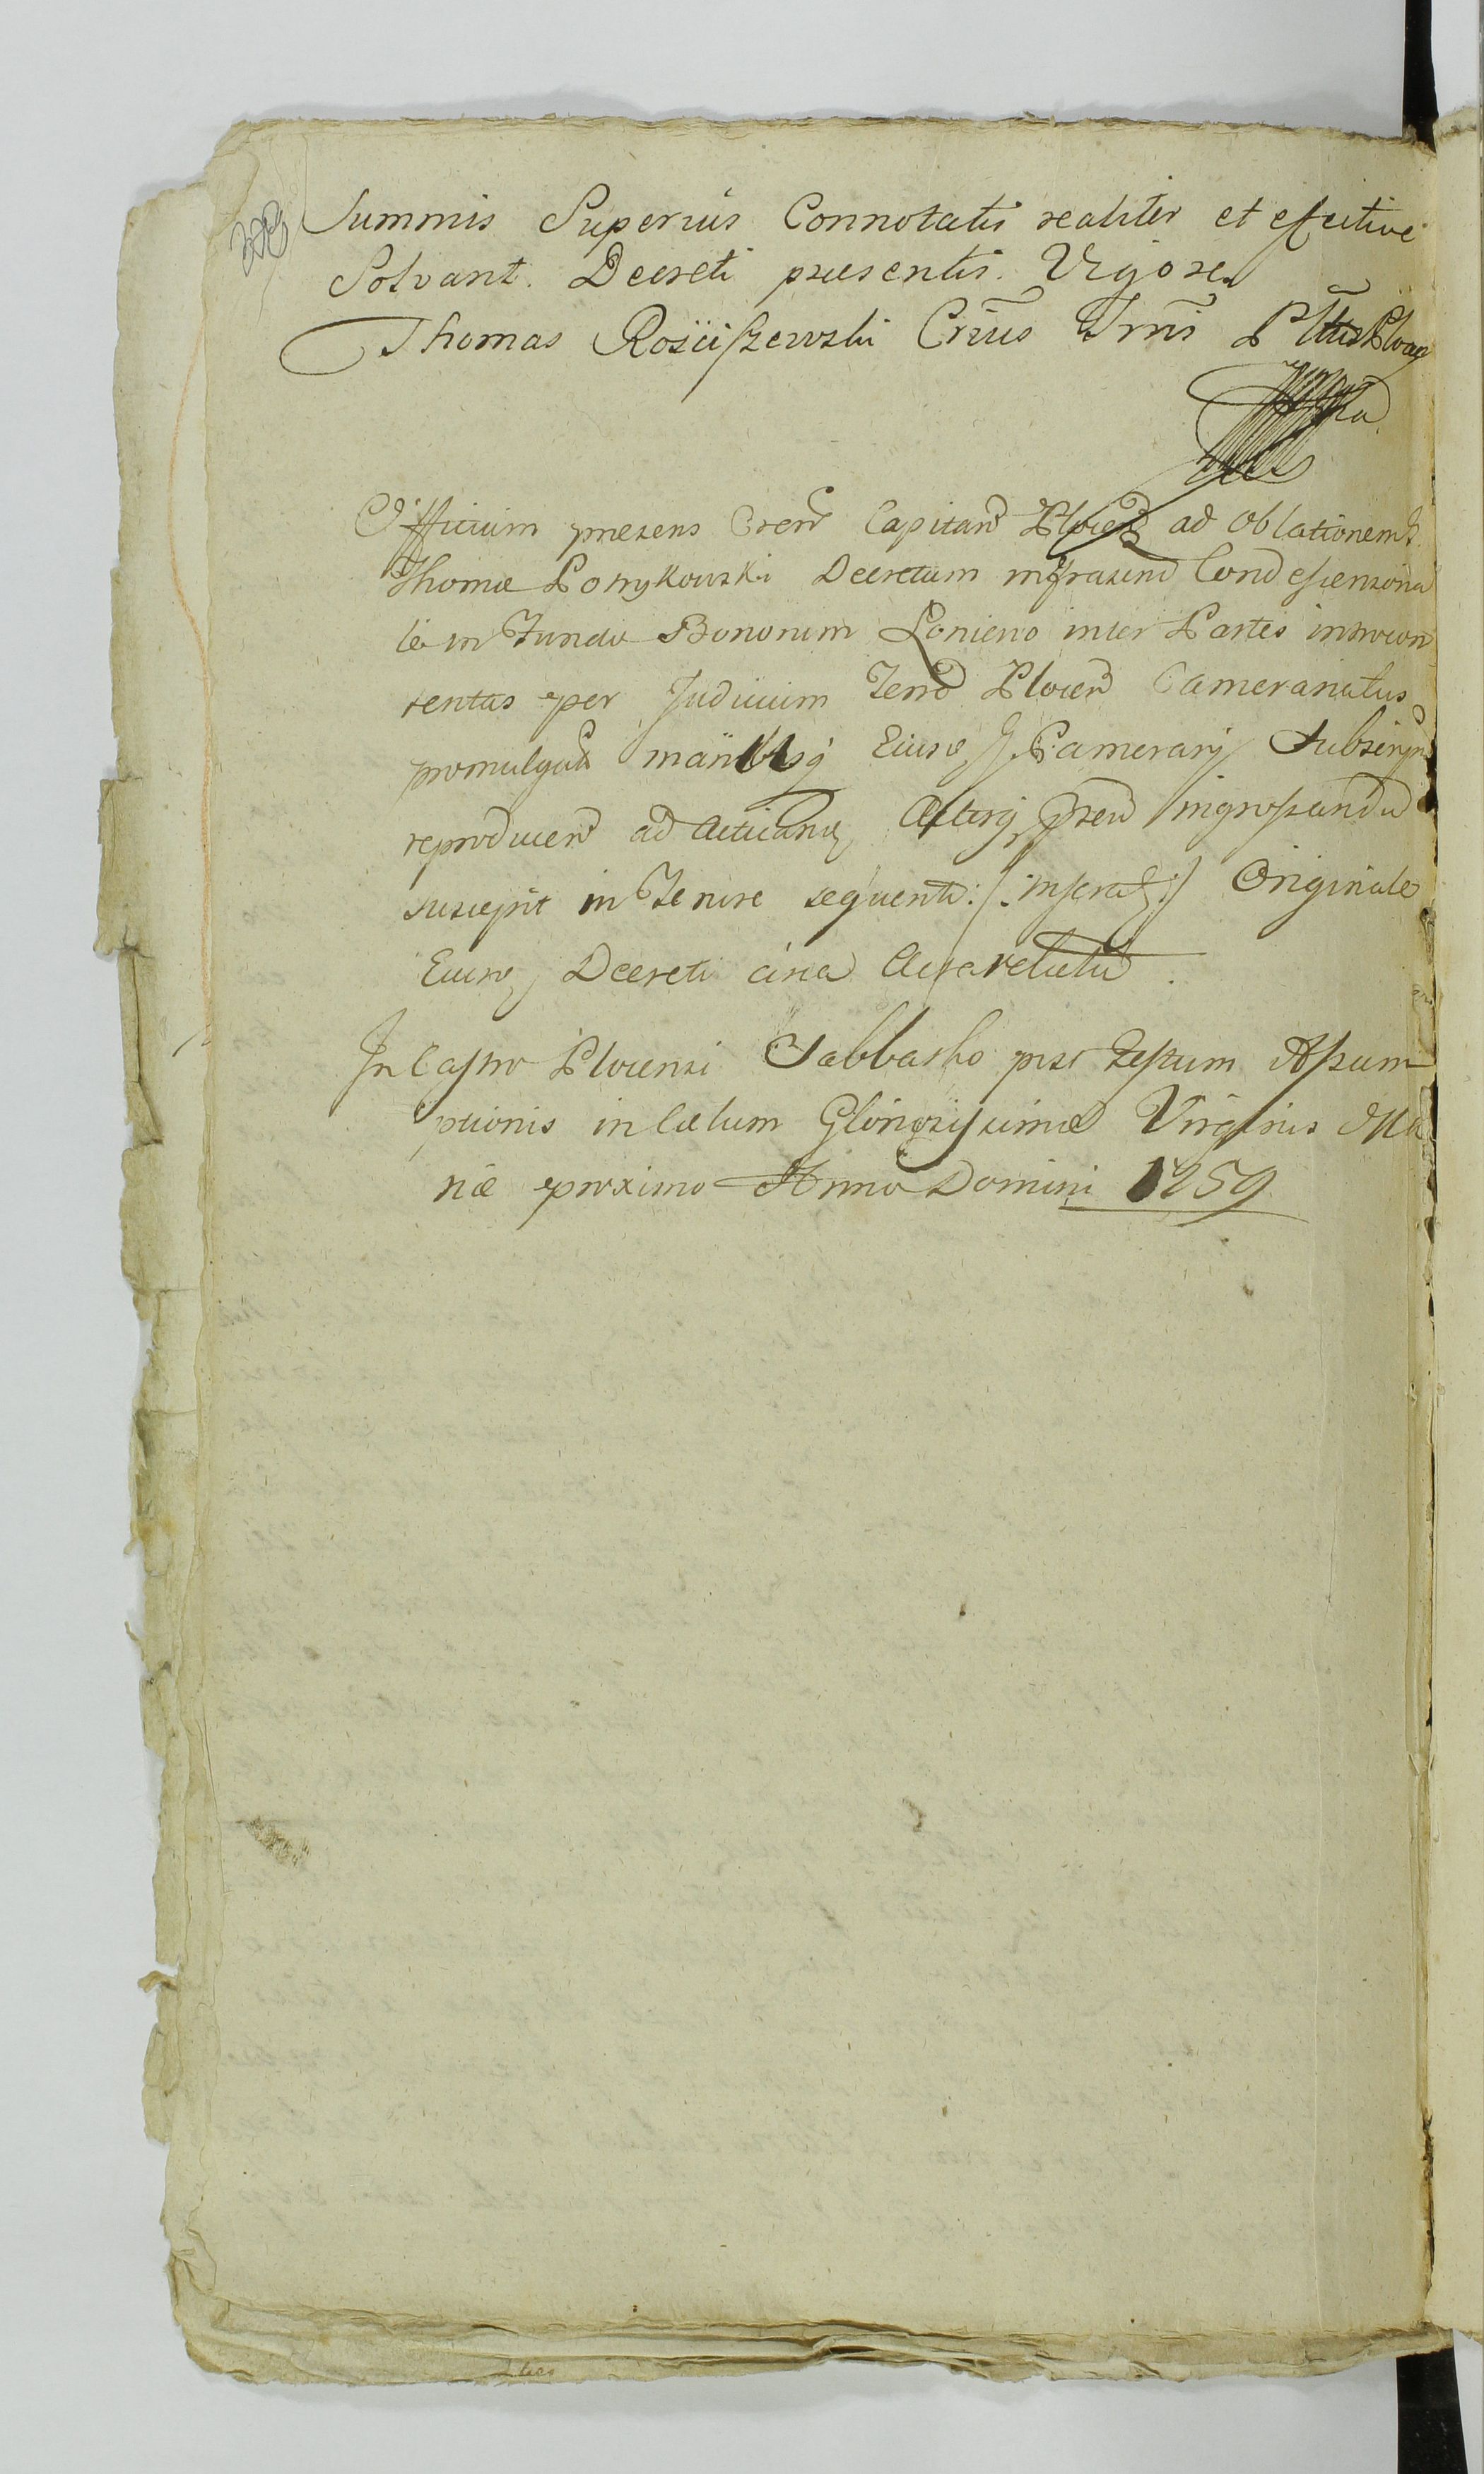 Summis Superius Connotatis realiter et efective
Solvant. Decreti praesentis. Vigore
Thomas Rościszewski Crius Trris
Officium praesens Cren Capitan Plocen ad Oblationem G
Thomæ Potrykowski Decretum infrascrip Condescensiona
le in Fundo Bonorum Łonieno inter Partes introcon
tentas per Judicium Terre Plocen Cameranatus
promulgatu manibusq Eiusd G Camerarij Subscrip
reproducen ad acticand Actisq pren ingrossandu
suscepit in Tenore sequenti: /: inserat :/ Originale
Eiusd Decreti circa Acta relictu.
In Castro Plocensi Sabbatho post Festum Assum
ptionis in Cælum Gloriosissimæ Virginis Ma
riæ proximo Anno Domini 1759